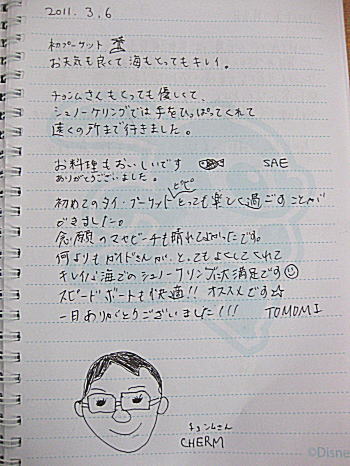 2011. 3. 6
初プーケット
お天気も良くて海もとってもキレイ。
チョンムさんもとっても優しくて、
シュノーケリングでは手をひっぱってくれて
遠くの所まで行きました。
お料理もおいしいです SAE
ありがとうございました。
初めてのタイ・プーケット とっても楽しく過ごすことが
できました。
念願のマヤビーチも晴れてよかったです。
何よりもガイドさんが、とってもよくしてくれて
キレイな海でのシュノーケリング大満足です
スピードボートも快適!! オススメです☆
一日ありがとうございました!!! TOMOMI
チョンムさん
CHERM
©Disne